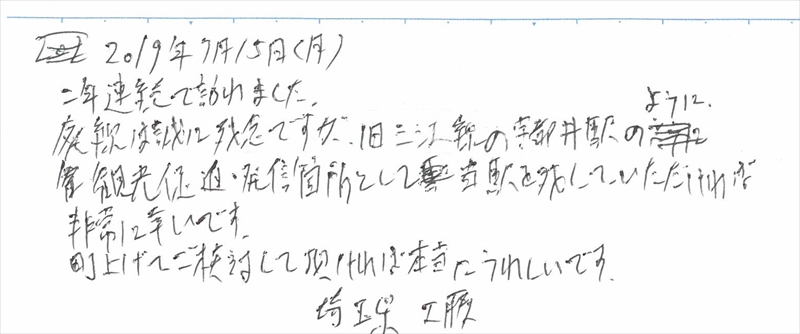 2019年7月15日(月)
二年連続で訪れました。
廃線は誠に残念ですが、旧三江線の宇都井駅の ように、
観光促進・発信箇所として 当駅を残していただければ
非常に幸いです。
町上げてご検討して頂ければ本当にうれしいです。
埼玉県 工藤